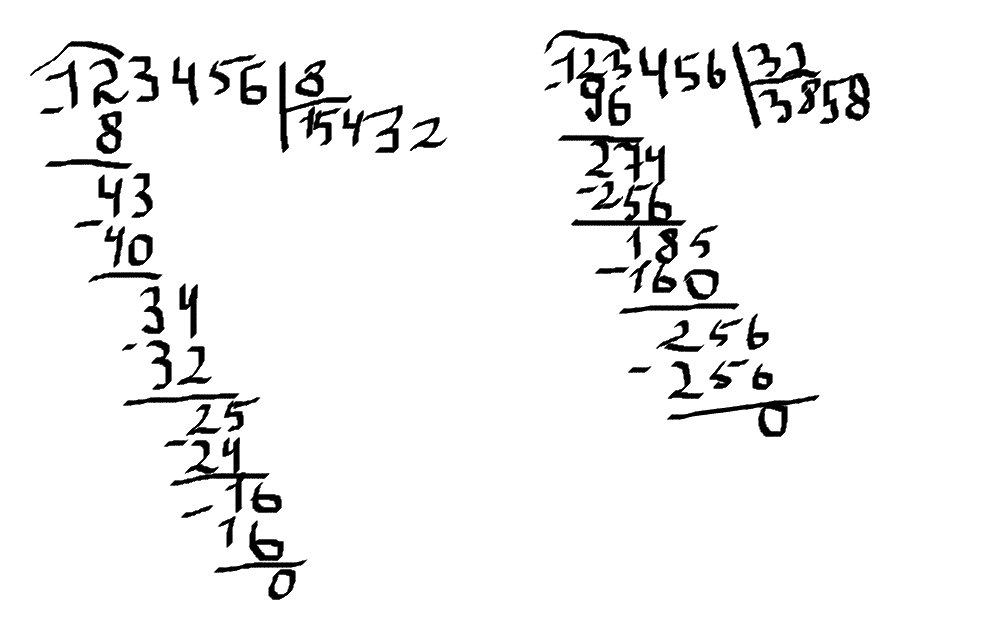 123456 8
- 8 15432
43
- 40
34
- 32
25
- 24
16
- 16
0
123456 32
- 96 3858
274
- 256
185
- 160
256
- 256
0